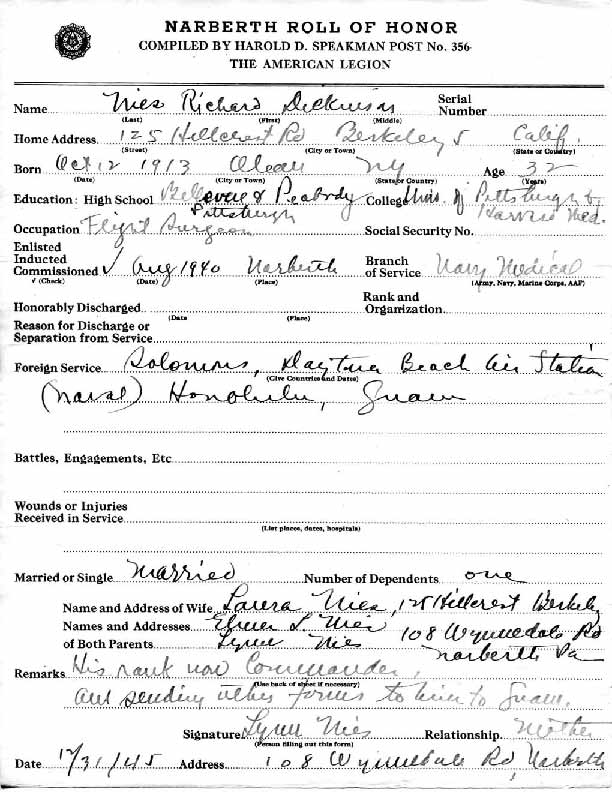 NARBERTH ROLL OF HONOR
COMPILED BY HAROLD D. SPEAKMAN POST No. 356
THE AMERICAN LEGION
Name Nies Richard Dickinson Serial Number
(Last) (First) (Middle)
Home Address 125 Hillcrest Rd Berkeley 5 Calif.
(Street) (City or Town) (State or Country)
Born Oct 12 1913 Olean NY Age 32
(Date) (City or Town) (State or Country) (Years)
Education: High School Bellevue & Peabody College Univ. of Pittsburgh &
Pittsburgh Harvard Med.
Occupation Flight Surgeon Social Security No.
Enlisted
Inducted
Commissioned ✓ Aug 1940 Narberth Branch of Service Navy Medical
✓ (Check) (Date) (Place) (Army, Navy, Marine Corps, AAF)
Honorably Discharged Rank and Organization
(Date (Place)
Reason for Discharge or
Separation from Service
Foreign Service Solomons, Daytona Beach Air Station
(Give Countries and Dates)
(Naval) Honolulu, Guam
Battles, Engagements, Etc
Wounds or Injuries
Received in Service
(List places, dates, hospitals)
Married or Single Married Number of Dependents one
Name and Address of Wife Laura Nies, 125 Hillcrest Berkeley
Names and Addresses Elmer L. Nies 108 Wynnedale Rd
of Both Parents Lynn Nies Narberth Pa
Remarks His rank now Commander,
(Use back of sheet if necessary)
Am sending other forms to him to Guam.
Signature Lynn Nies Relationship Mother
(Person filling out this form)
Date 12/31/45 Address 108 Wynnedale Rd, Narberth